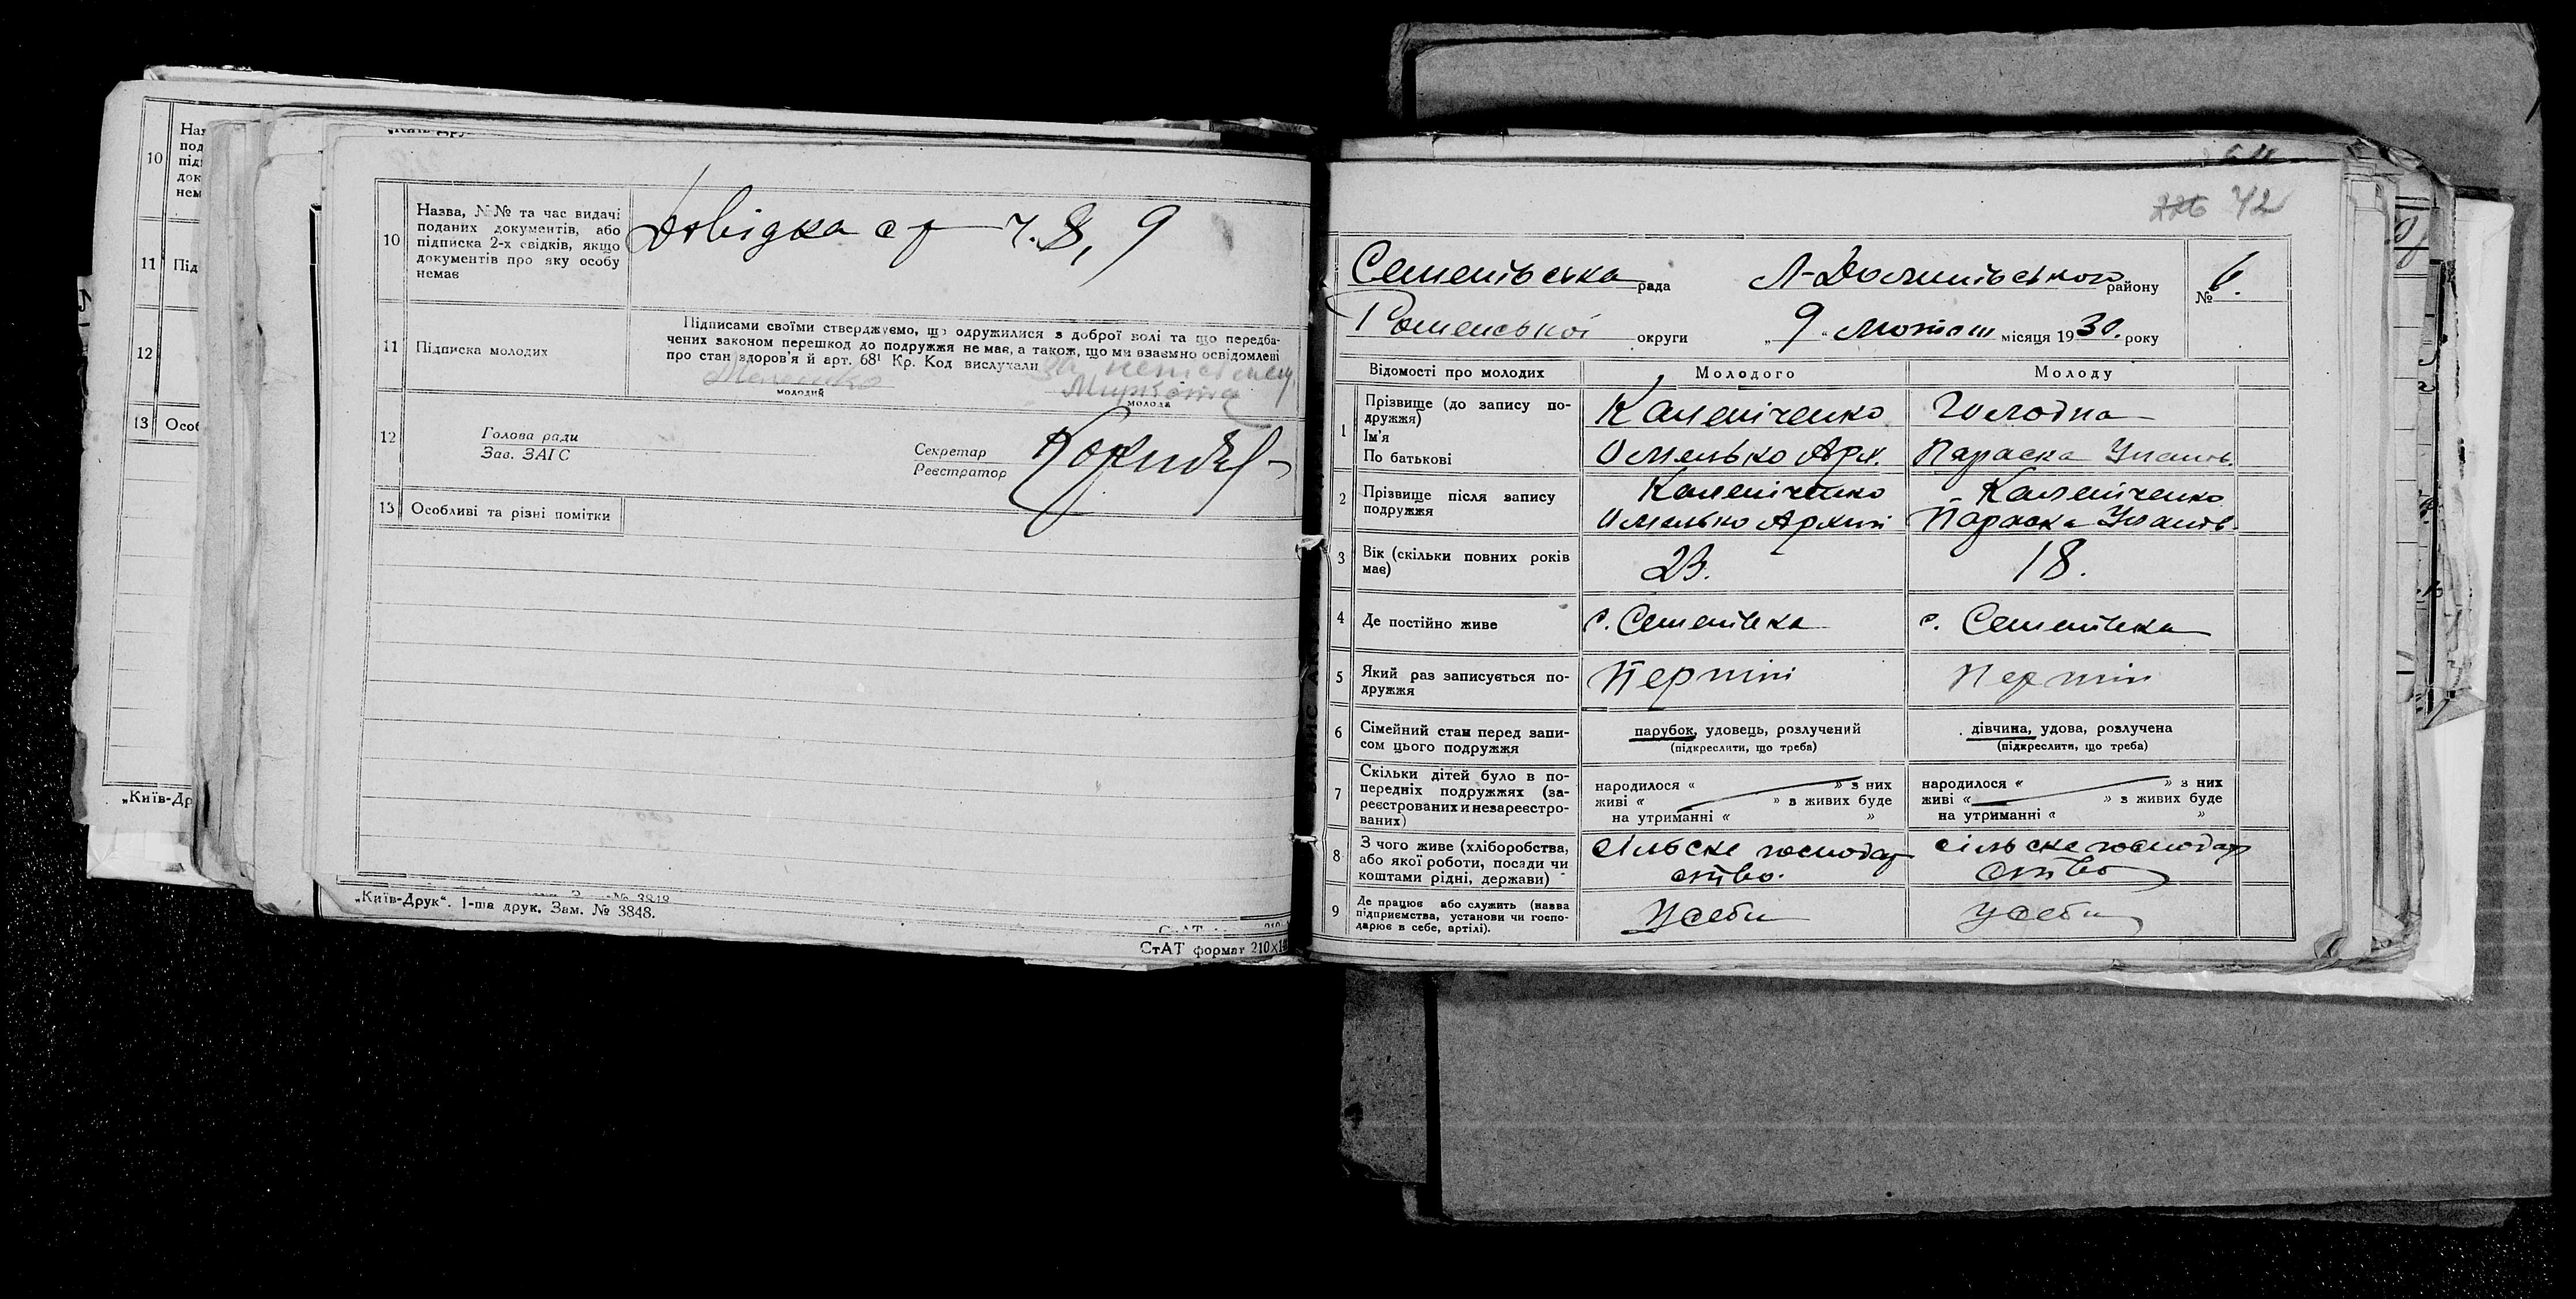 10
Назва, №№ та час видачі
поданих документів, або
підписка 2-х свідків, якщо
документів про яку особу
немає
Довідка с р ч. 8, 9
11
Підписка молодих
Підписами своїми стверджуємо, що одружилися з доброї волі та що передба-
чених законом перешкод до подружжя не має, а також, що ми взаємно освідомлені
про стан здоров'я й арт. 68¹ Кр. Код вислухали
За
молодий
молода
12
Голова ради
Зав. ЗАГС
Секретар
Реєстратор
13
Особливі та різні помітки
„Київ-Друк“. 1-ша друк. Зам. № 3848.
СтАТ формат 210×1
10
11
Під
12
13
Особ
„Київ-Др
226 42
Семенівська рада Л-Долинівського району
№ 6.
Роменської округи „9“ лютого місяця 1930. року
Відомості про молодих
Молодого
Молоду
1
Прізвище (до запису по-
дружжя)
Ім'я
По батькові
Каленіченко
Омелько Арх.
Голодна
Параска
2
Прізвище після запису
подружжя
Каленіченко
Омелько Архип
Каленіченко
Параска
3
Вік (скільки повних років
має)
23.
18.
4
Де постійно живе
с. Семенівка
с. Семенівка
5
Який раз записується по-
дружжя
Перший
Перший
6
Сімейний стан перед запи-
сом цього подружжя
парубок, удовець, розлучений
(підкреслити, що треба)
дівчина, удова, розлучена
(підкреслити, що треба)
7
Скільки дітей було в по-
передніх подружжях (за-
реєстрованих и незареєстро-
ваних)
народилося « » з них
живі « » з живих буде
на утриманні « »
народилося « » з них
живі « » з живих буде
на утриманні « »
8
З чого живе (хліборобства,
або якої роботи, посади чи
коштами рідні, держави)
сільське господар
ство.
сільске господар
ство
9
Де працює або служить (назва
підприємства, установи чи госпо-
дарює в себе, артілі).
У себе
у себе